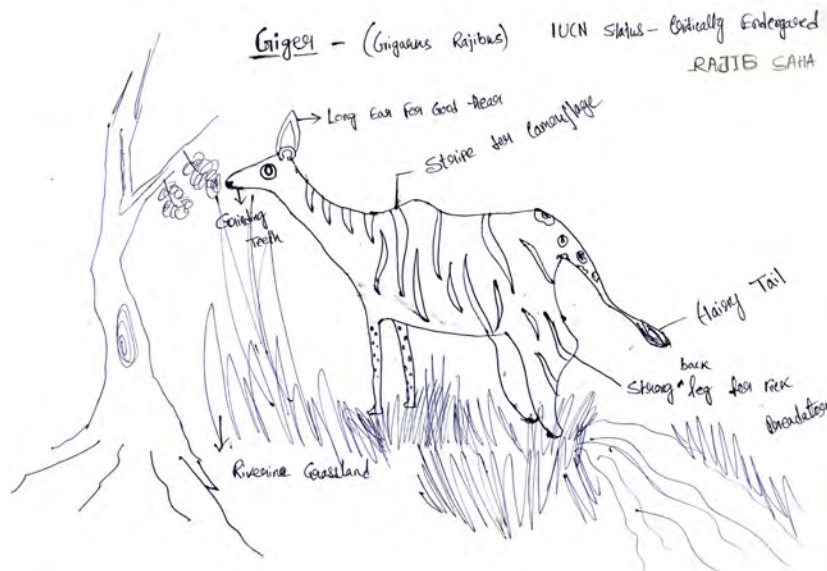 Giger - (Gigarus Rajibus) IUCN Status - Critically Endengared
RAJIB SAHA
Long Ear For Good Hear
Stripe for Camouflage
Grinding
Teeth
Hairy Tail
Strong back leg for
Riverine Grassland